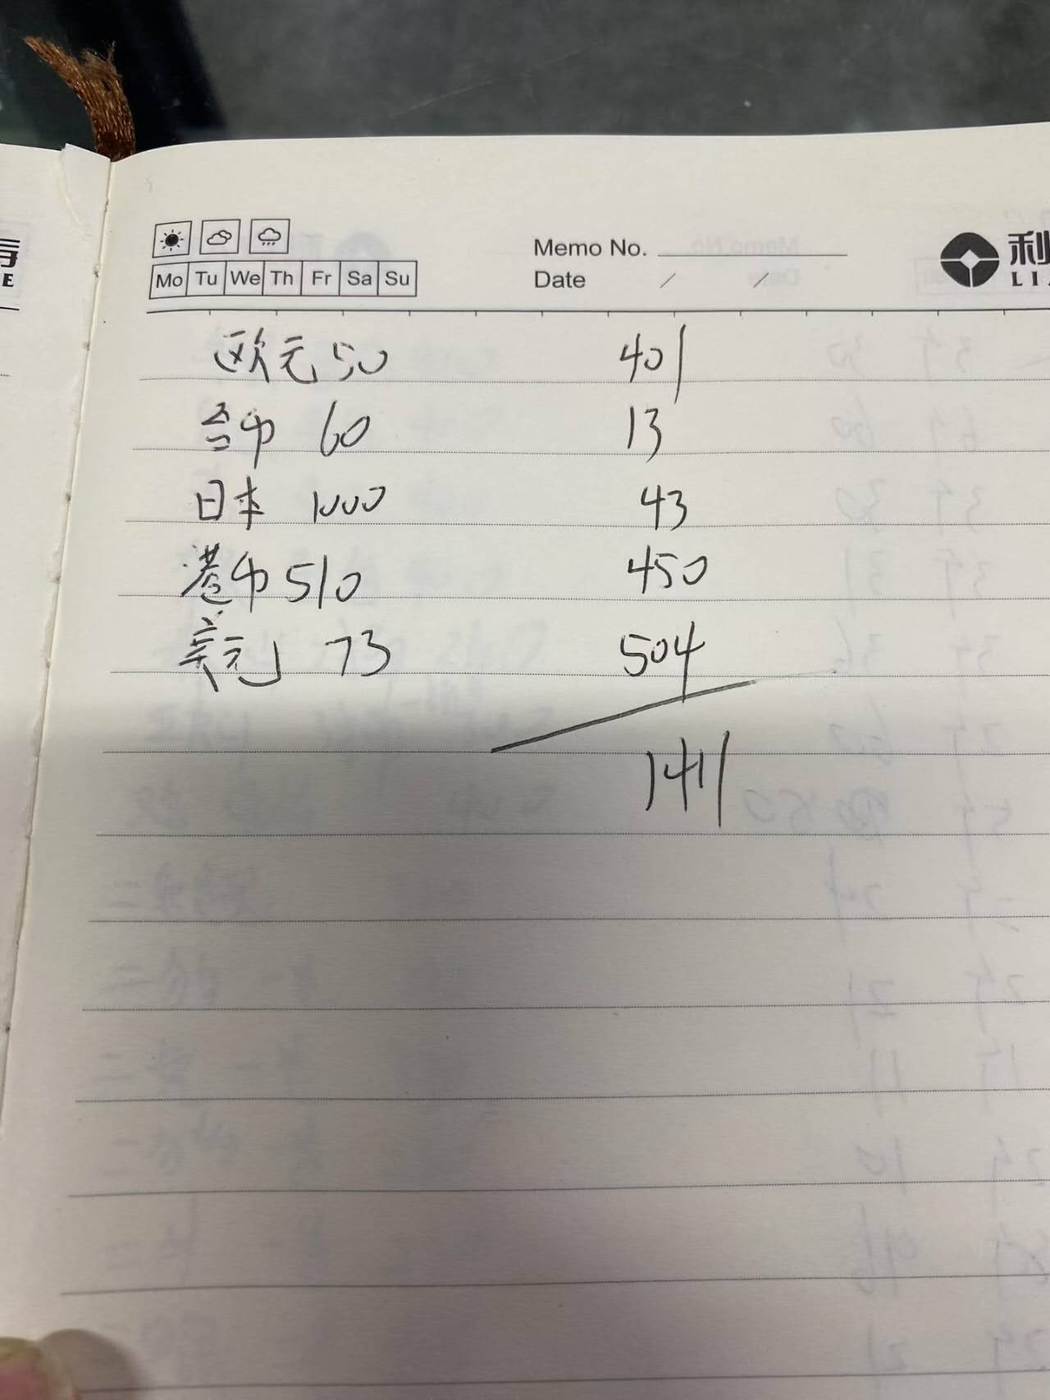 Memo No.
Mo Tu We Th Fr Sa Su
Date / /
欧元 50 401
台币 60 13
日本 1000 43
港币 510 450
美元 73 504
1411